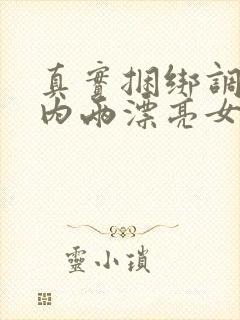 真實捆綁調
內兩漂亮女
靈小瑣